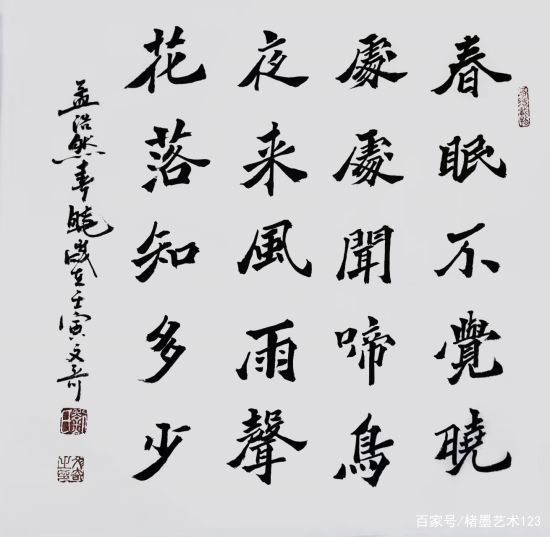 春眠不覺曉
處處聞啼鳥
夜来風雨聲
花落知多少
孟浩然春曉歲在壬寅文奇
百家号/楮墨艺术123